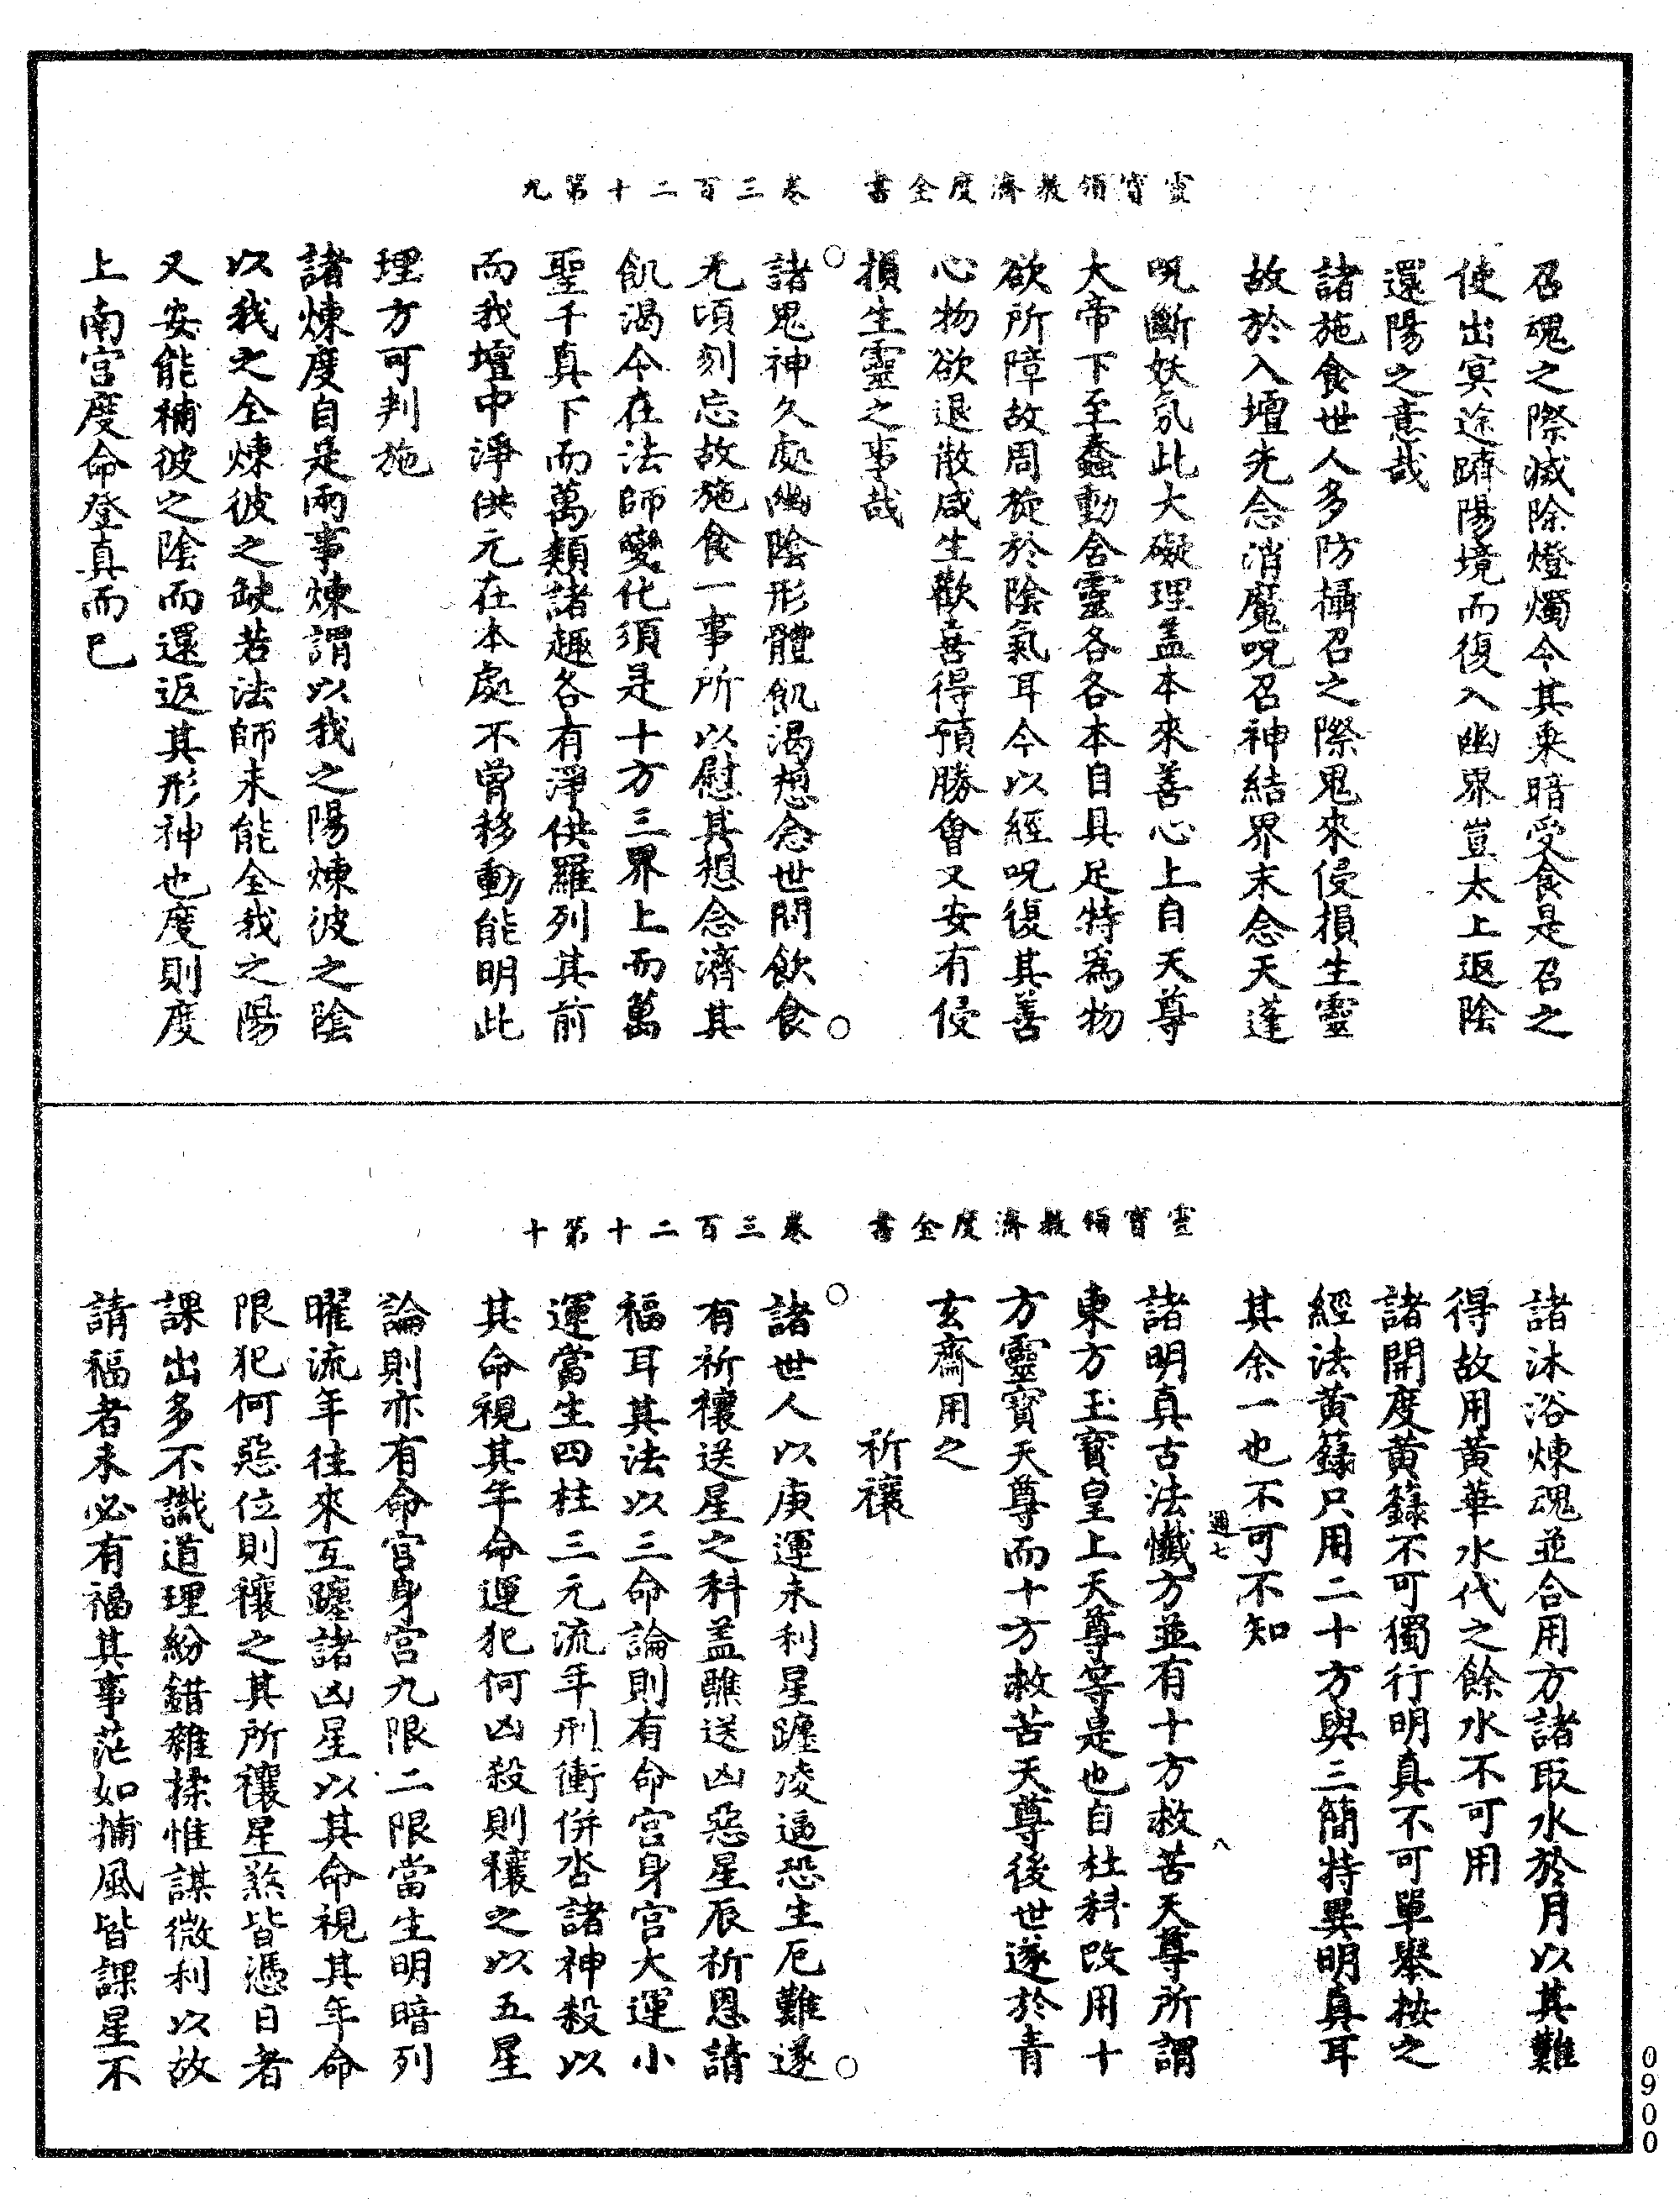 靈寶領教濟度全書　卷三百二十第九
召魂之際滅除燈燭令其乗暗受食是召之
使出冥途躋陽境而復入幽界豈太上返陰
還陽之意哉
諸施食世人多防攝召之際鬼來侵損生靈
故於入壇先念消魔呪召神結界末念天蓬
呪斷妖氛此大礙理盖本來善心上自天尊
大帝下至蠢動含靈各各本自具足特為物
欲所障故周旋於陰氣耳今以經呪復其善
心物欲退散咸生歡喜得預勝會又安有侵
損生靈之事哉
諸鬼神久處幽陰形體飢渴想念世間飲食
无頃刻忘故施食一事所以慰其想念濟其
飢渴今在法師變化須是十方三界上而萬
聖千真下而萬類諸趣各有淨供羅列其前
而我壇中淨供元在本處不曾移動能明此
理方可判施
諸煉度自是兩事煉謂以我之陽煉彼之陰
以我之全煉彼之缺若法師未能全我之陽
又安能補彼之陰而還返其形神也度則度
上南宮度命登真而已
靈寶領教濟度全書　卷三百二十第十
諸沐浴煉魂並合用方諸取水於月以其難
得故用黃華水代之餘水不可用
諸開度黃籙不可獨行明真不可單舉按之
經法黃籙只用二十方與三簡特異明真耳
其余一也不可不知
週七　八
諸明真古法懺方並有十方救苦天尊所謂
東方玉寶皇上天尊等是也自杜科改用十
方靈寶天尊而十方救苦天尊後世遂於青
玄齋用之
祈禳
諸世人以庚運未利星躔凌逼恐生厄難遂
有祈禳送星之科盖醮送凶惡星辰祈恩請
福耳其法以三命論則有命宮身宮大運小
運當生四柱三元流年刑衝併沓諸神殺以
其命視其年命運犯何凶殺則禳之以五星
論則亦有命宮身宮九限二限當生明暗列
曜流年往來互躔諸凶星以其命視其年命
限犯何惡位則禳之其所禳星煞皆憑日者
課出多不識道理紛錯雜揉惟謀微利以故
請福者未必有福其事茫如捕風皆課星不
0900